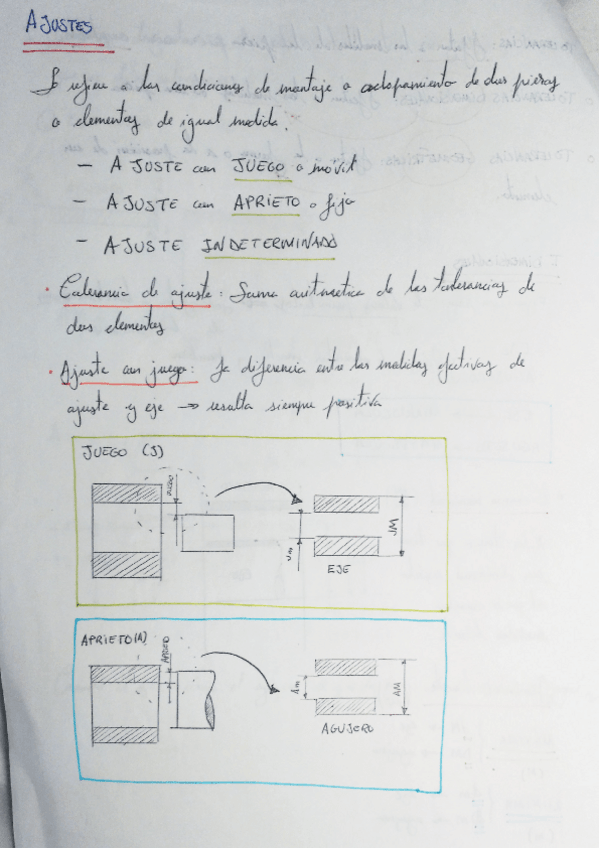 AJUSTES
Se refiere a las condiciones de montaje o acoplamiento de dos piezas
o elementos de igual medida.
- AJUSTE con JUEGO o móvil
- AJUSTE con APRIETO o fijo
- AJUSTE INDETERMINADO
· Tolerancia de ajuste: Suma aritmética de las tolerancias de
dos elementos
· Ajuste con juego: la diferencia entre las medidas efectivas de
ajuste y eje → resulta siempre positiva
JUEGO (J)
JUEGO
Jm
JM
EJE
APRIETO (A)
APRIETO
Am
AM
AGUJERO